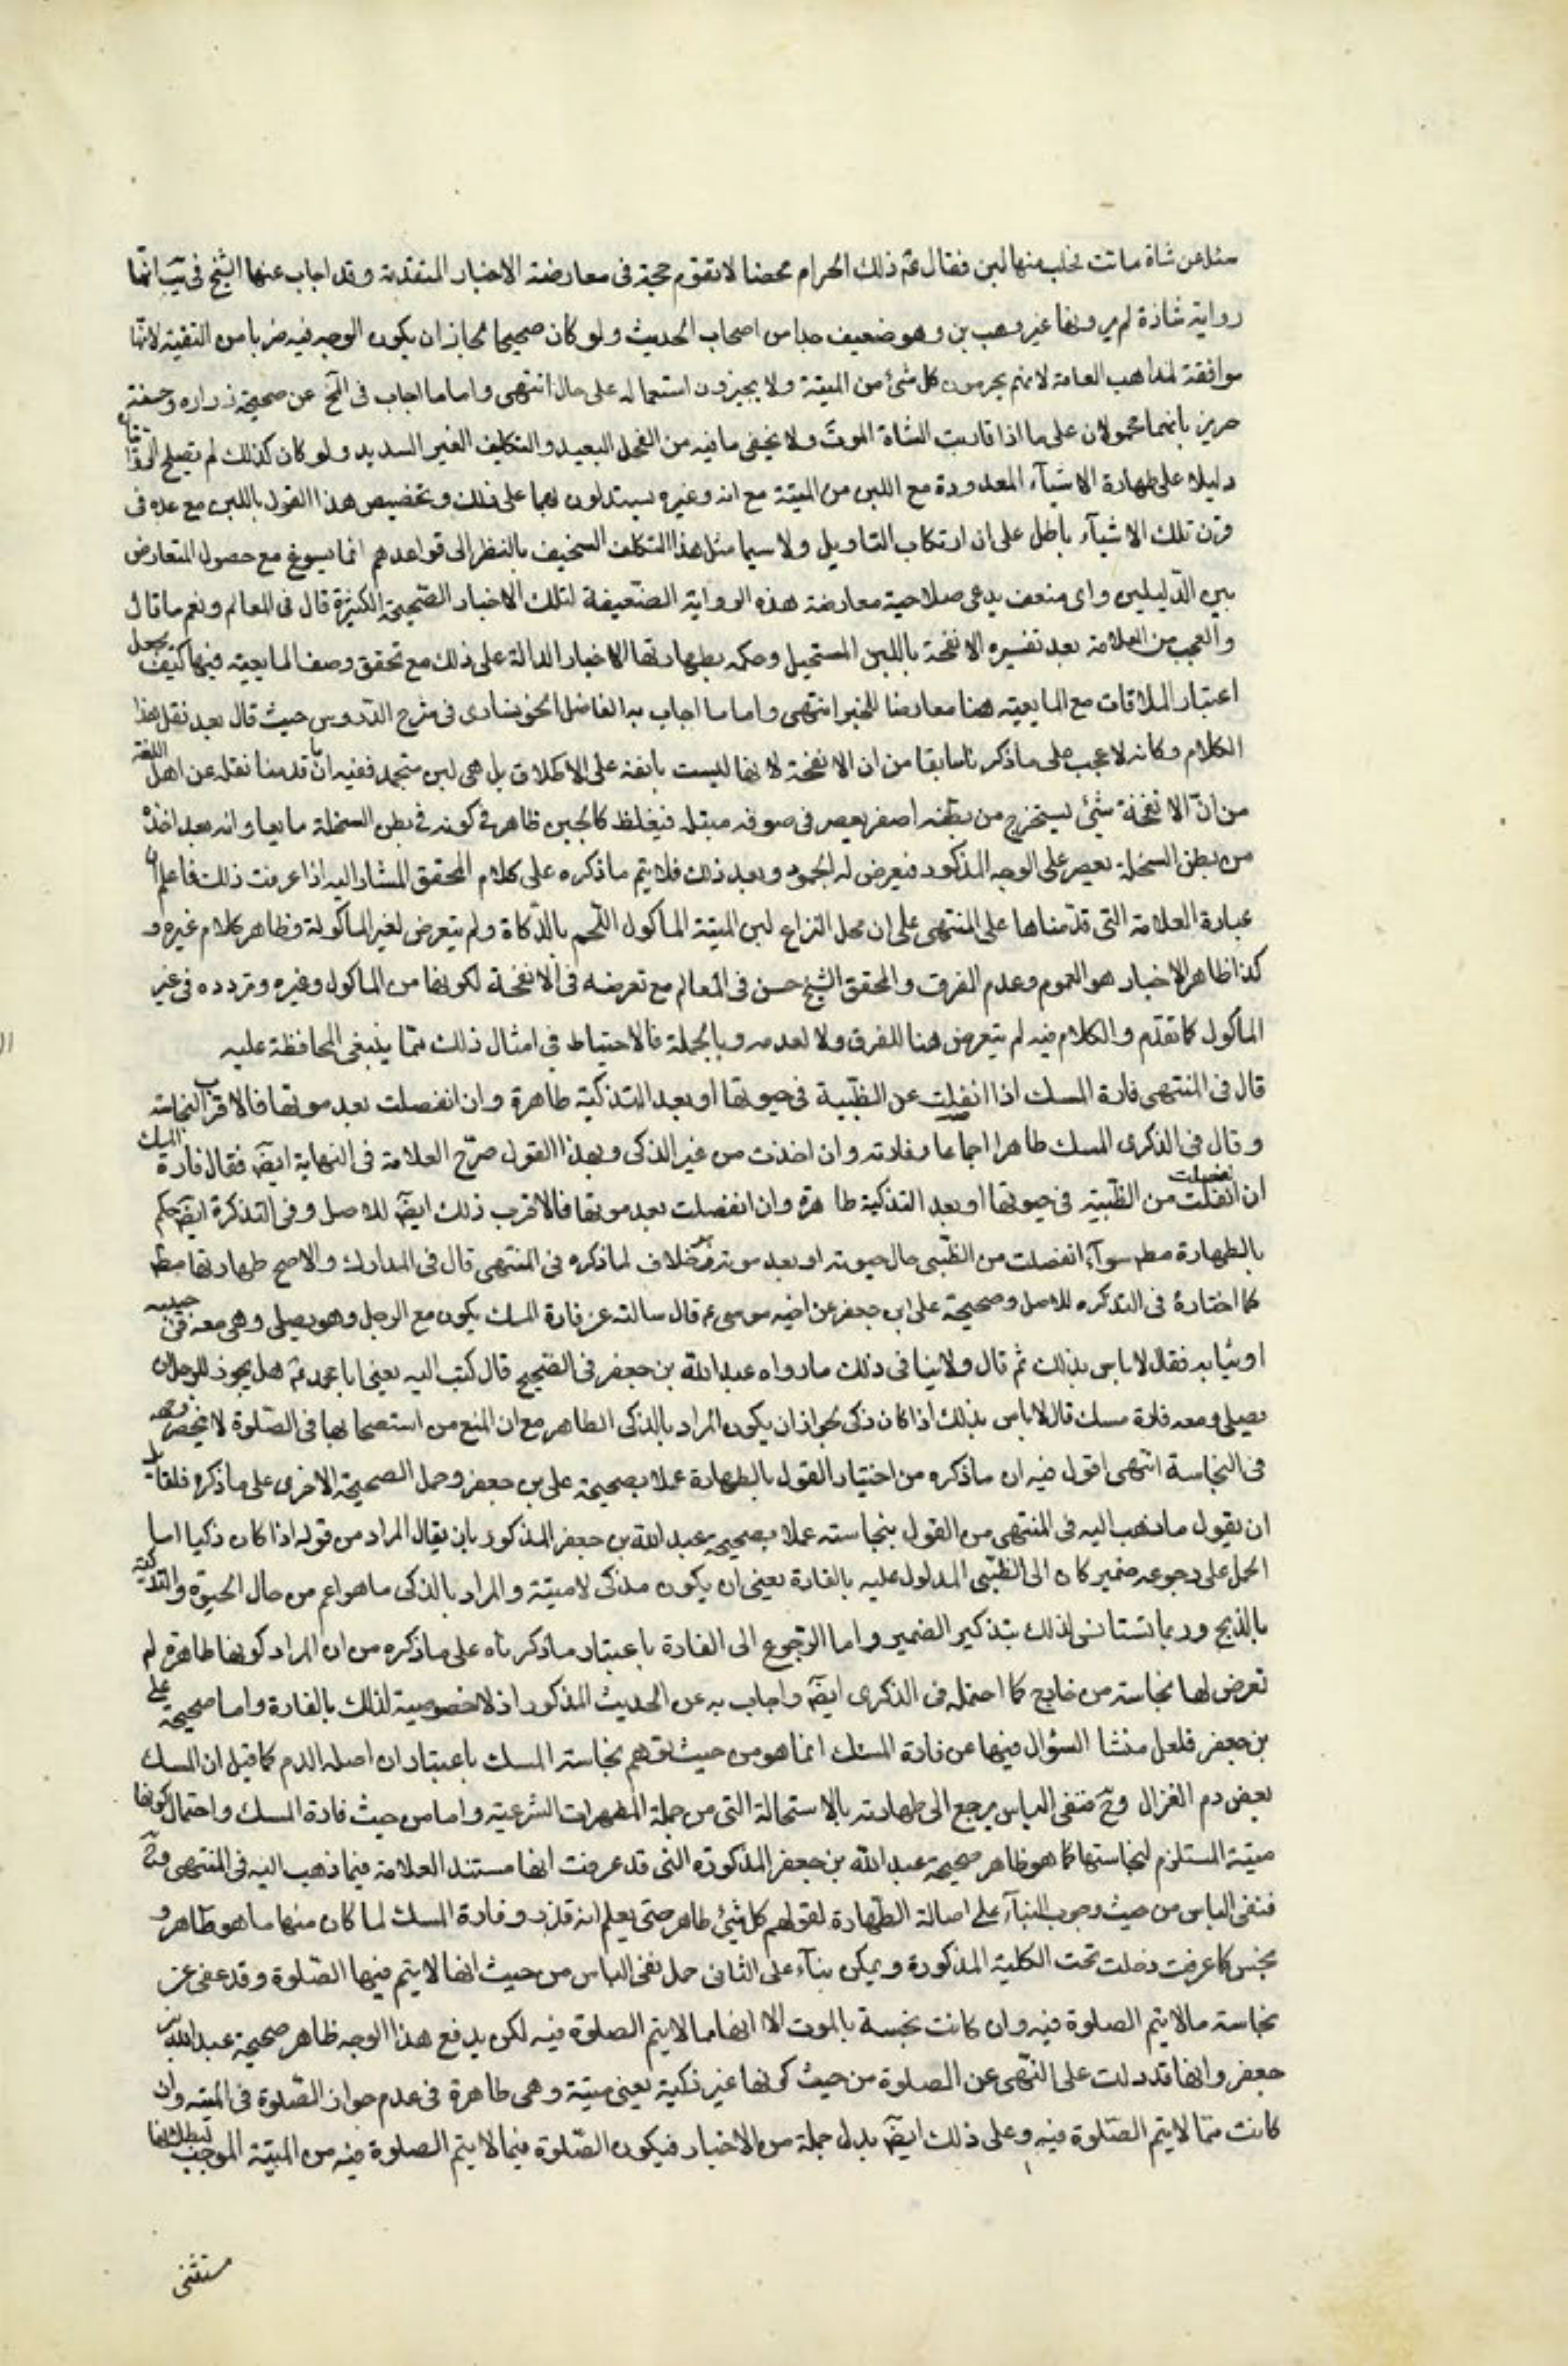 سئل عن شاة ماتت نحلب منها لبن فقال عم ذلك الحرام محضا لا تقوم حجة فى معارضة الاخبار المتقدمة وقد اجاب عنها الشيخ فى يب انها
رواية شاذة لم يروها غير وهب بن وهو ضعيف جدا من اصحاب الحديث ولو كان صحيحا لجاز ان يكون الوجه فيه ضربا من التقية لانها
موافقة لمذاهب العامة لانهم يحرمون كل شئ من الميتة ولا يجيزون استعماله على حال انتهى واما ما اجاب فى الخ عن صحيحة زراره وحسنة
حريز بانهما محمولان على ما اذا قاربت الشاة الموت ولا يخفى ما فيه من التمحل البعيد والتكليف الغير السديد ولو كان كذلك لم تصلح الروايات
دليلا على طهارة الاشيآء المعدودة مع اللبن من الميتة مع انه وغيره يستدلون بهما على ذلك وتخصيص هذا القول باللبن مع عده فى
قرن تلك الاشيآء باطل على ان ارتكاب التاويل ولا سيما مثل هذا التكلف السخيف بالنظر الى قواعدهم انما يسوغ مع حصول التعارض
بين الدّليلين واى منصف يدعى صلاحية معارضة هذه الرواية الضّعيفة لتلك الاخبار الصّحيحة الكثيرة قال فى المعالم ونعم ما قال
والعجب من العلامة بعد تفسيره الانفحة باللبن المستحيل وحكمه بطهارتها للاخبار الدالة على ذلك مع تحقق وصف المايعية فيها كيف يجعل
اعتبار الملاقات مع المايعية هنا معارضا للخبر انتهى واما ما اجاب به الفاضل الخونسارى فى شرح الدّروس حيث قال بعد نقل هذا
الكلام وكانه لا عجب على ما ذكرنا سابقا من ان الانفحة لانها ليست مايعة على الاطلاق بل هى لبن متجمد ففيه انّ ما قدمنا نقله عن اهل اللغة
من انّ الانفحة شئ يستخرج من بطنه اصفر يعصر فى صوفه مبتله فيغلظ كالجبن ظاهر فى كونه فى بطن السخلة مايعا وانه بعد اخذه
من بطن السخلة يعصر على الوجه المذكور فيعرض له الجمود وبعد ذلك فلا يتم ما ذكره على كلام المحقق المشار اليه اذا عرفت ذلك فاعلم ان
عبارة العلامة التى قدّمناها على المنتهى على ان محل النزاع لبن الميتة الماكول اللّحم بالذّكاة ولم يتعرض لغير الماكولة وظاهر كلام غيره و
كذا ظاهر الاخبار هو العموم وعدم الفرق والمحقق الشيخ حسن فى المعالم مع تعرضه فى الانفحة لكونها من الماكول وغيره وتردده فى غير
الماكول كما تقدّم والكلام فيه لم يتعرض هنا للفرق ولا لعدمه وبالجملة فالاحتياط فى امثال ذلك ممّا ينبغى المحافظة عليه
قال فى المنتهى فارة المسك اذا انفصلت عن الظّبية فى حيوتها او بعد التذكية طاهرة وان انفصلت بعد موتها فالاقرب النجاسة
وقال فى الذكرى المسك طاهرا اجماعا وفارته وان اخذت من غير الذكى وبهذا القول صرّح العلامة فى النهاية ايضا فقال فارة المسك
ان انفصلت من الظّبية فى حيوتها او بعد التذكية طاهرة وان انفصلت بعد موتها فالاقرب ذلك ايضا للاصل وفى التذكرة ايضا حكم
بالطهارة مط سوآء انفصلت من الظّبى حال حيوته او بعد موته خلاف لما ذكره فى المنتهى قال فى المدارك والاصح طهارتها مط
كما اختاره فى التذكره للاصل وصحيحة على ابن جعفر عن اخيه موسى عم قال سالته عن فارة المسك يكون مع الرجل وهو يصلى وهى معه فى جيبه
او ثيابه فقال لا باس بذلك ثم قال ولا ينافى ذلك ما رواه عبد الله بن جعفر فى الصّحيح قال كتبت اليه يعنى ابا محمد عم هل يجوز للرجل ان
يصلى ومعه فارة مسك قال لا باس بذلك اذا كان ذكى لجواز ان يكون المراد بالذكى الطاهر مع ان المنع من استصحابها فى الصّلوة لا ينحصر وجهه
فى النجاسة انتهى اقول فيه ان ما ذكره من اختيار القول بالطهارة عملا بصحيحة على بن جعفر وحمل الصحيحة الاخرى على ما ذكره فلقائل
ان يقول ما ذهب اليه فى المنتهى من القول بنجاسته عملا بصحيحة عبد الله بن جعفر المذكور بان يقال المراد من قوله اذا كان ذكيا اما
الحمل على رجوعه ضمير كان الى الظّبى المدلول عليه بالفارة يعنى ان يكون مذكى لا ميتة والمراد بالذكى ما هو اعم من حال الحيوة والتذكية
بالذبح وربما تستانس لذلك بتذكير الضمير واما الرّجوع الى الفارة باعتبار ما ذكرناه على ما ذكره من ان المراد كونها طاهرة لم
تعرض لها نجاسة من خارج كما احتمله فى الذكرى ايضا واجاب به عن الحديث المذكور اذ لا خصوصية لذلك بالفارة واما صحيحة على
بن جعفر فلعل منشا السؤال فيها عن فارة المسك انما هو من حيث توهم نجاسة المسك باعتبار ان اصله الدم كما قيل ان المسك
بعض دم الغزال وح فنفى الباس يرجع الى طهارته بالاستحالة التى من جملة المطهرات الشرعية واما من حيث فارة المسك واحتمال كونها
ميتة المستلزم لنجاستها كما هو ظاهر صحيحة عبد الله بن جعفر المذكورة التى قد عرفت انها مستند العلامة فيما ذهب اليه فى المنتهى وح
فنفى الباس من حيث وجوب البنآء على اصالة الطّهارة لقولهم كل شئ طاهر حتى يعلم انه قذر وفارة المسك لما كان منها ما هو طاهر و
نجس كما عرفت دخلت تحت الكلية المذكورة ويمكن بنآء على الثانى حمل نفى الباس من حيث انها لا يتم فيها الصّلوة وقد عفى عن
نجاسة ما لا يتم الصلوة فيه وان كانت نجسة بالموت الا انها مما لا يتم الصلوة فيه لكن يدفع هذا الوجه ظاهر صحيحة عبد الله بن
جعفر وانها قد دلت على النّهى عن الصلوة من حيث كونها غير ذكية يعنى ميتة وهى ظاهرة فى عدم جواز الصّلوة فى الميتة وان
كانت ممّا لا يتم الصّلوة فيه وعلى ذلك ايضا يدل جملة من الاخبار فيكون الصّلوة فيما لا يتم الصلوة فيه من الميتة الموجب لبطلانها
مستثنى